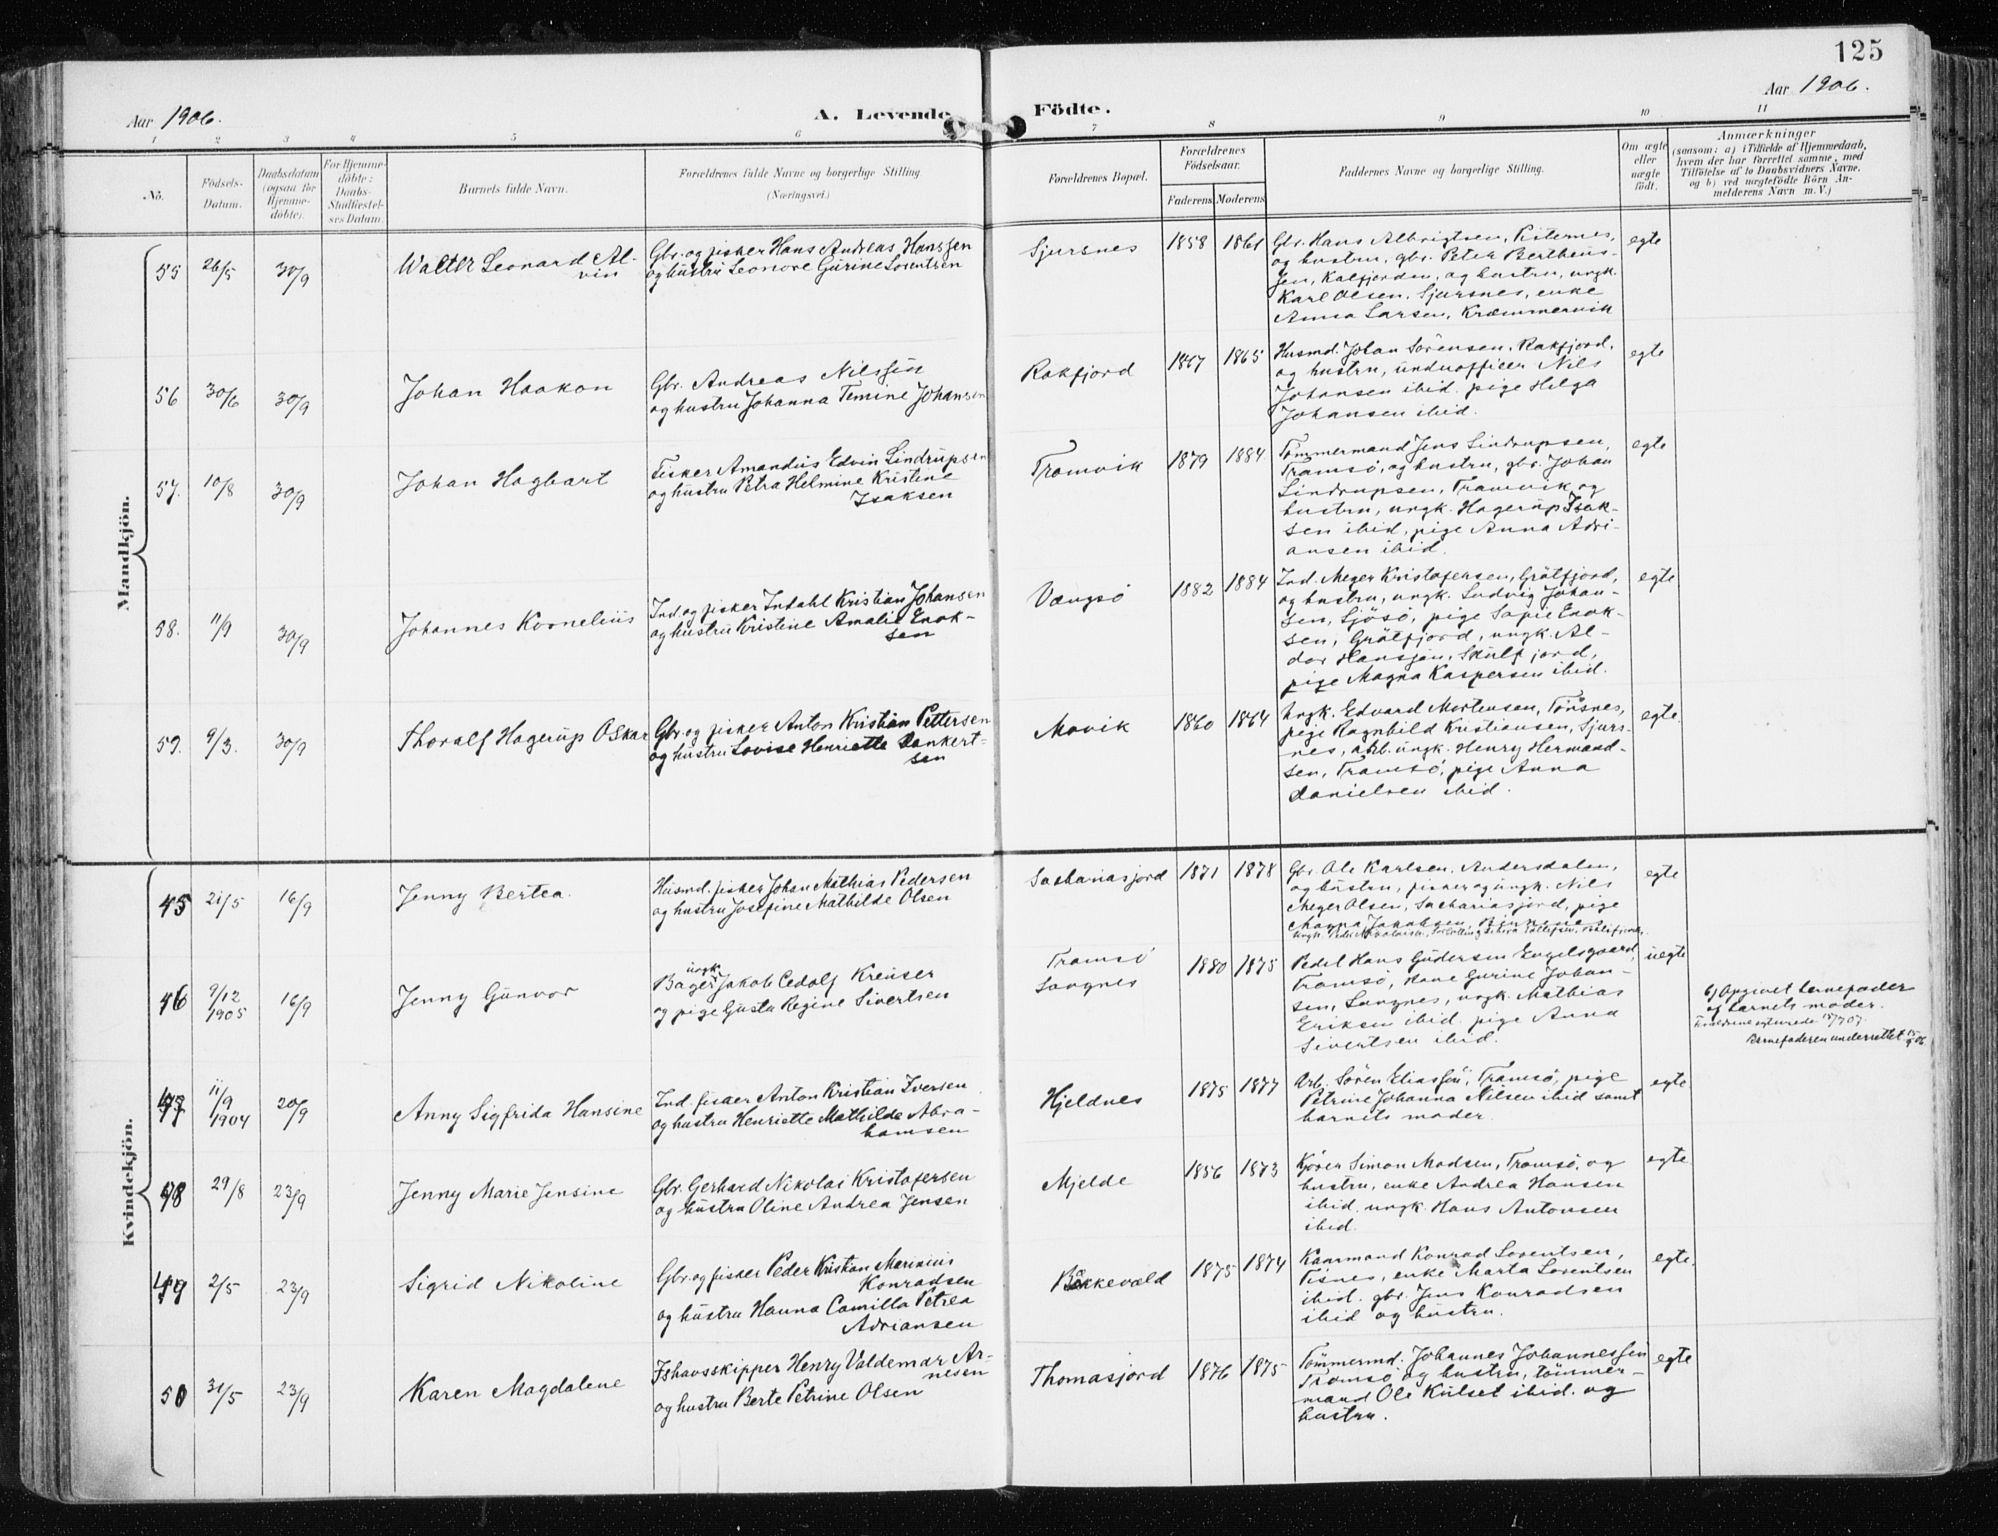 125
Aar 1906.
A. Levende Födte.
Aar 1906.
1 2 3 4 5 6 7 8 9 10 11
No.
Födsels-
Datum.
Daabsdatum
(ogsaa för
Hjemme-
döbte).
For Hjemme-
döbte:
Daabs-
Stadfæstel-
ses Datum.
Barnets fulde Navn.
Forældrenes fulde Navne og borgerlige Stilling
(Næringsvei.)
Forældrenes Bopæl.
Forældrenes
Födselsaar.
Faderens Moderens
Faddernes Navne og borgerlige Stilling.
Om ægte
eller
uægte
födt.
Anmærkninger
(saasom: a) i Tilfælde af Hjemmedaab,
hvem der har forrettet samme, med
Tilföielse af to Daabsvidners Navne,
og b) ved uægtefödte Börn An-
melderens Navn m. V.)
Mandkjön.
55 26/5 30/9
Walter Leonard Al-
vin
Gbr. og fisker Hans Andreas Hanssen
og hustru Leonore Gurine Lorentsen
Sjursnes
1858 1861
Gbr. Hans Albrigtsen,
og hustru, gbr. Peter Bertheus-
sen, Kalfjorden, og hustru, ungk.
Karl Olsen, Sjursnes, enke
Anna Larsen, Kræmmervik
egte
56 30/6 30/9
Johan Haakon
Gbr. Andreas Nilssen
og hustru Johanna Temine Johansen
Rakfjord
1867 1865
Husmd. Johan Sörensen, Rakfjord,
og hustru, underofficer Nils
Johansen ibid. pige Helga
Johansen ibid.
egte
57. 10/8 30/9
Johan Hagbart
Fisker Amandus Edvin Lindrupsen
og hustru Petra Helmine Kristine
Isaksen
Tromvik
1879 1884
Tömmermand Jens Lindrupsen,
Tromsö, og hustru, gbr. Johan
Lindrupsen, Tromvik og
hustru, ungk. Hagerup Isak-
sen ibid, pige Anna Adri-
ansen ibid.
egte
58. 11/9 30/9
Johannes Kornelius
Ind og fisker Indahl Kristian Johansen
og hustru Kristine Amalie Enok-
sen
Vængsö
1882 1884
Ind. Meyer Kristofersen, Grötfjord,
og hustru, ungk. Ludvig Johan-
sen, Sjösö, pige Sofie Enok-
sen, Grötfjord, ungk. Al-
dor Hanssen, Skulfjord,
pige Magna Kaspersen ibid.
egte
59. 9/3. 30/9
Thoralf Hagerup Oskar
Gbr. og fisker Anton Kristian Pettersen
og hustru Lovise Henriette Dankert-
sen
Movik
1860 1864
Ungk. Edvard Mortensen, Tönsnes,
pige Ragnhild Kristiansen, Sjurs-
nes, arb. ungk. Henry Hermand-
sen, Tromsö, pige Anna
Danielsen ibid.
egte.
Kvindekjön.
45 21/5 16/9
Jenny Bertea.
Husmd. fisker Johan Mathias Pedersen
og hustru Josefine Mathilde Olsen
Sachariasjord
1871 1878
Gbr. Ole Karlsen, Andersdalen,
og hustru, fisker og ungk. Nils
Meyer Olsen, Sachariasjord, pige
Magna Jakobsen,
egte
46 9/12
1905 16/9
Jenny Gunvor
ungk.
Bager Jakob Cedolf Kreuser
og pige Gusta Regine Sivertsen
Tromsö
Langnes
1880 1875
Pedel Hans Gudersen Engelsgaard,
Tromsö, kone Gurine Johan-
sen, Langnes, ungk. Mathias
Eriksen ibid. pige Anna
Sivertsen ibid.
uegte
b) Opgivet barnefader
af barnets moder.
Forældrene egteviede
Barnefaderen underrettet
47 11/9
1904 20/9
Anny Sigfrida Hansine
Ind. fisker Anton Kristian Iversen
og hustru Henriette Mathilde Abra-
hamsen
Hjeldnes
1875 1877
Arb. Sören Eliassen, Tromsö, pige
Petrine Johanna Nilsen ibid samt
barnets moder.
egte
48 29/8 23/9
Jenny Marie Jensine
Gbr. Gerhard Nikolai Kristofersen
og hustru Oline Andrea Jensen
Mjelde
1856 1873
Kjörer Simon Madsen, Tromsö, og
hustru, enke Andrea Hansen
ibid. ungk. Hans Antonsen
ibid.
egte
49 2/5 23/9
Sigrid Nikoline
Gbr. og fisker Peder Kristian Merinius
Konradsen
og hustru Hanna Camilla Petrea
Adriansen
Bakkevold
1875 1874
Kaarmand Konrad Lorentsen,
Tisnes, enke Marta Lorentsen
ibid. gbr. Jens Konradsen
ibid og hustru.
egte.
50 31/5 23/9
Karen Magdalene
Ishavsskipper Henry Valdemar Ar-
nesen
og hustru Berte Petrine Olsen
Thomasjord
1876 1875
Tömmermd. Johannes Johannessen
Tromsö, og hustru, tömmer-
mand Ole Kulset ibid. og
hustru.
egte